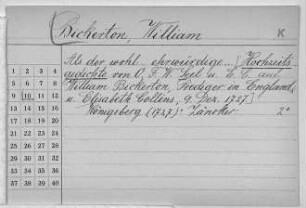 Bickerton, William
K
Als der wohl-ehrwürdige... [Hochzeits
gedichte von C. F. W. Teil u. E. C. auf
William Bickerton, Prediger in England,
u. Elisabeth Collins, 9. Dez. 1727]
Königsberg (1727): Zäncker 2°
1 2 3 4
5 6 7 8
9 10 11 12
13 14 15 16
17 18 19 20
21 22 23 24
25 26 27 28
29 30 31 32
33 34 35 36
37 38 39 40